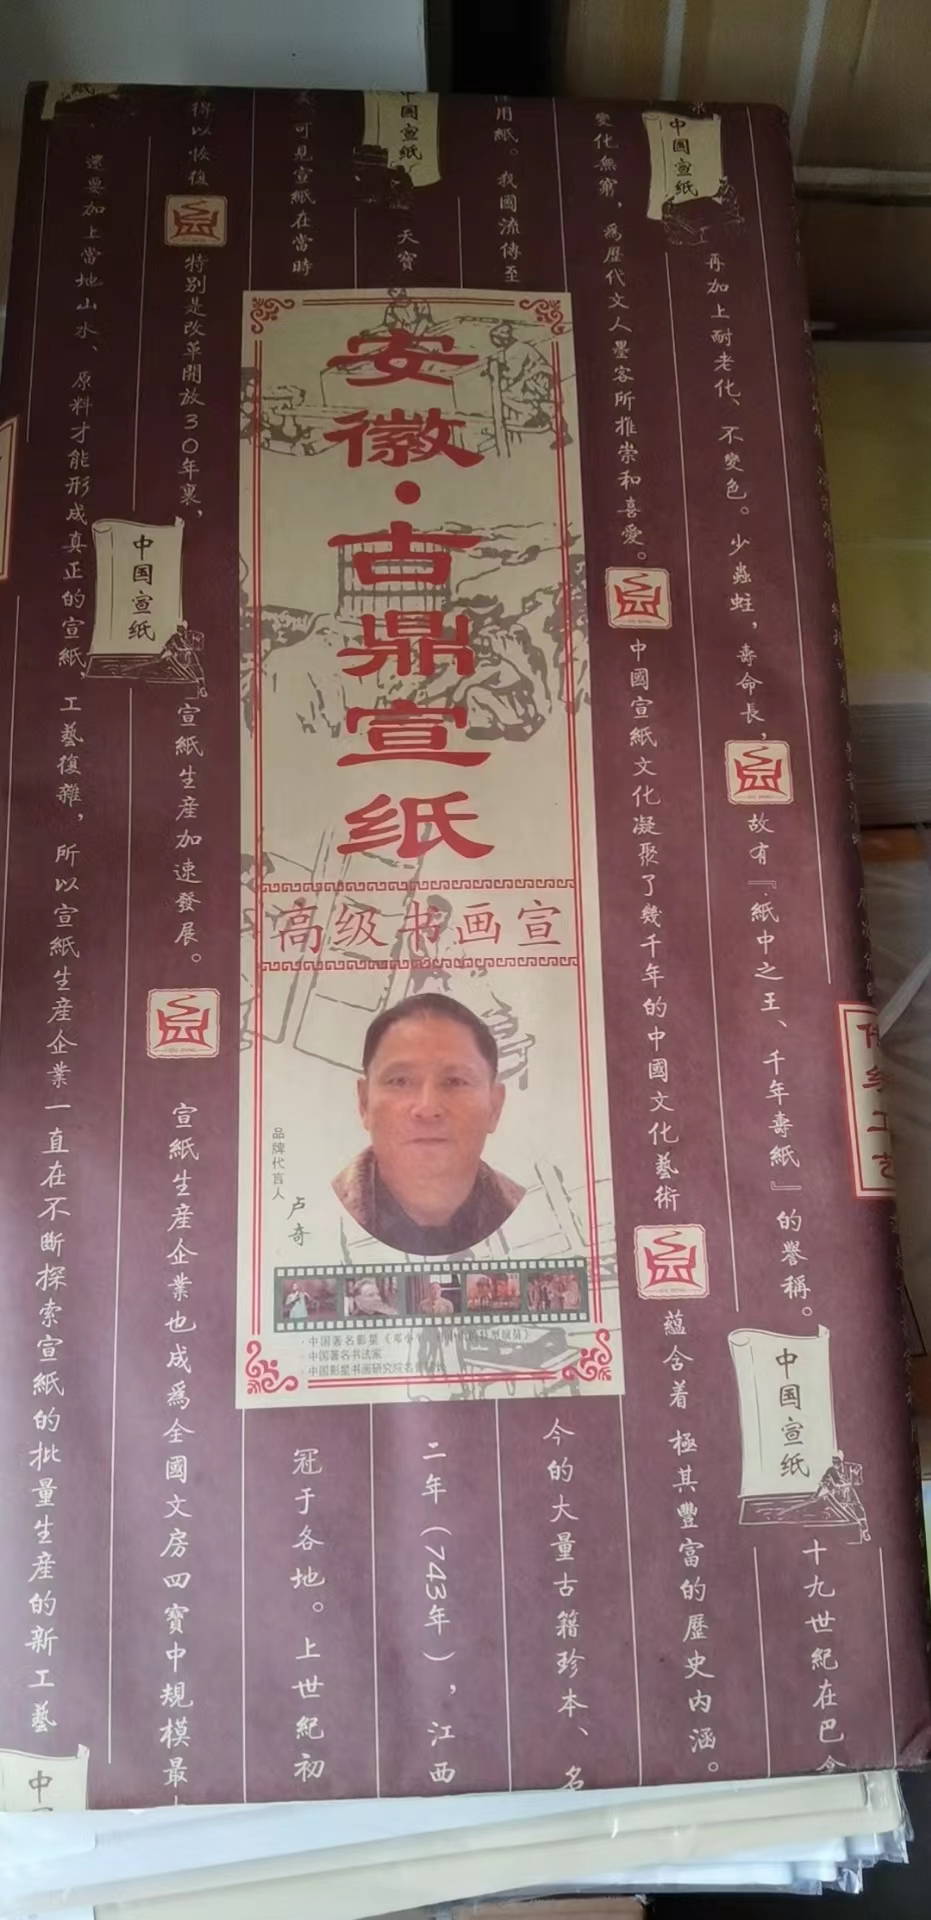 安徽·古鼎宣纸
高级书画宣
品牌代言人
卢奇
·中国著名影星《邓小
·中国著名书法家
·中国影星书画研究院名
中国宣紙
再加上耐老化、不變色。少蟲蛀，壽命長，
故有『紙中之王、千年壽紙』的譽稱。
中国宣紙
十九世紀在巴
變化無窮，爲歷代文人墨客所推崇和喜愛。
中國宣紙文化凝聚了幾千年的中國文化藝術
蘊含着 極其豐富的歷史内涵。
用紙。我國流傳至
今的大量古籍珍本、名
中国宣紙
天寶
二年（743年），江西
可見宣紙在當時
冠于各地。上世紀初
得以恢復
特别是改革開放30年裏，
宣紙生産加速發展。
宣紙生産企業也成爲全國文房四寶中規模最
中国宣紙
還要加上當地山水、原料才能形成真正的宣紙，工藝復雜，所以宣紙生産企業一直在不斷探索宣紙的批量生産的新工藝
中
紙
工